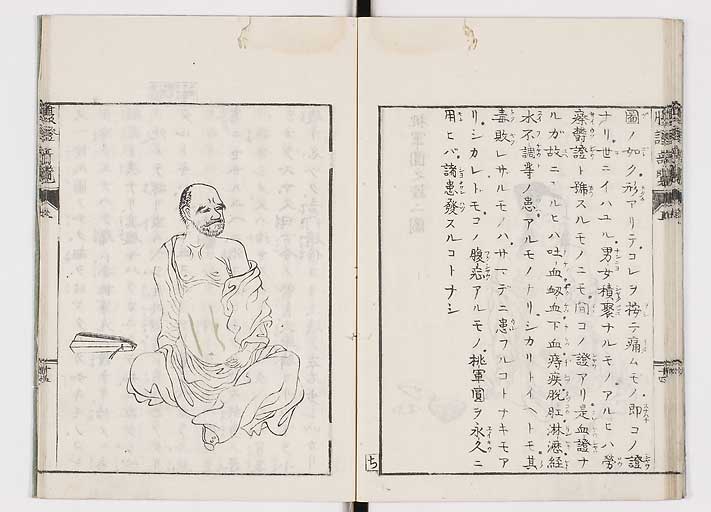 圖ノ如ク形アリテコレヲ按テ痛ムモノ即コノ證
ナリ世ニイハユル男女積聚ナルモノアルヒハ勞
瘵鬱證ト號スルモノニモ間コノ證アリ是血證ナ
ルガ故ニアルヒハ吐血衂血下血痔疾脫肛淋瀝經
水不調等ノ患アルモノトリシカリトイヘトモ其
毒敗レサルモノハサマデニ患フルコトナキモア
リシカレトモコノ腹候アルモノ桃軍圓ヲ永久ニ
用ヒバ諸患發スルコトナシ
ち